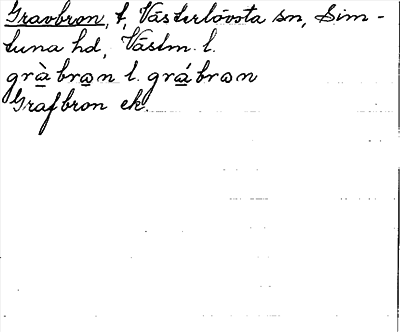 Gravbron, t, Västerlövsta sn, Sim-
tuna hd, Västm. l.
grà̱bro̱n l. grá̱bron
Grafbron ek.